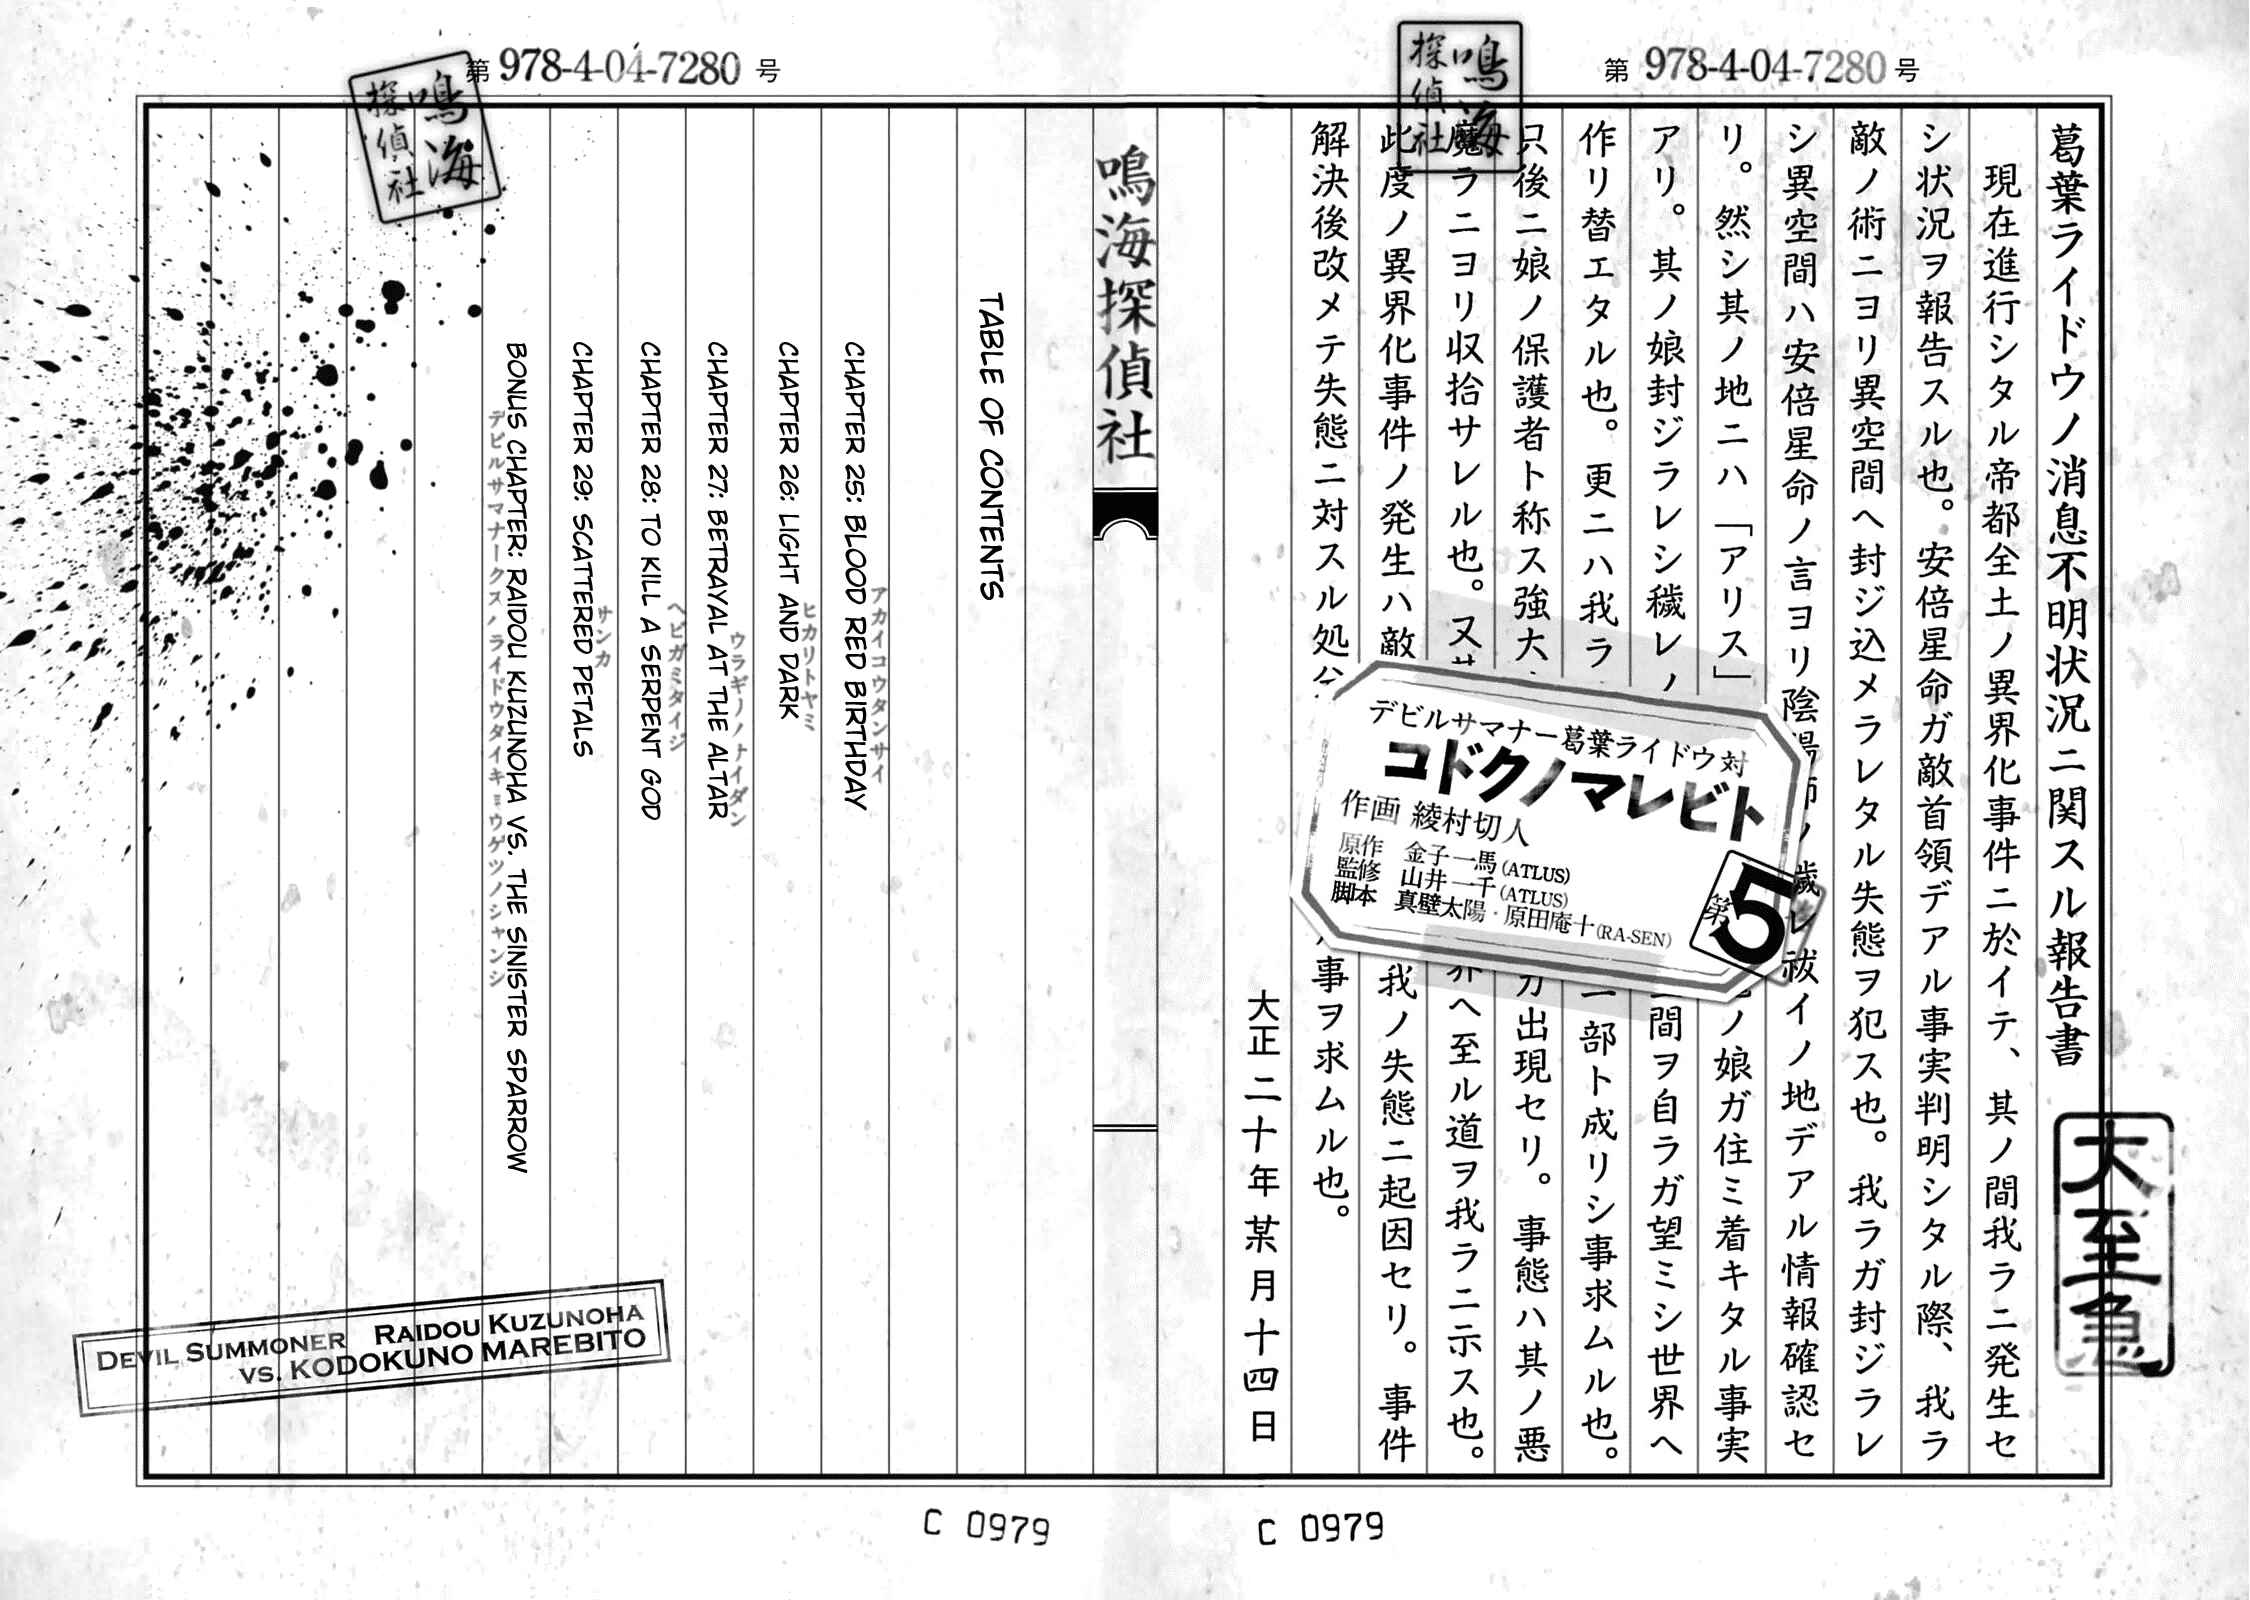 第 978-4-04-7280 号
鳴海
探偵社
葛葉ライドウノ消息不明状況ニ関スル報告書
大至急
現在進行シタル帝都全土ノ異界化事件ニ於イテ、其ノ間我ラニ発生セ
シ状況ヲ報告スル也。安倍星命ガ敵首領デアル事実判明シタル際、我ラ
敵ノ術ニヨリ異空間へ封ジ込メラレタル失態ヲ犯ス也。我ラガ封ジラレ
シ異空間ハ安倍星命ノ言ヨリ陰陽師ノ穢レ祓イノ地デアル情報確認セ
リ。然シ其ノ地ニハ「アリス」ノ娘ガ住ミ着キタル事実
アリ。其ノ娘封ジラレシ穢レノ間ヲ自ラガ望ミシ世界へ
作リ替エタル也。更ニハ我ラ一部ト成リシ事求ムル也。
只後ニ娘ノ保護者ト称ス強大ガ出現セリ。事態ハ其ノ悪
魔ラニヨリ収拾サレル也。又其界へ至ル道ヲ我ラニ示ス也。
此度ノ異界化事件ノ発生ハ敵我ノ失態ニ起因セリ。事件
解決後改メテ失態ニ対スル処分事ヲ求ムル也。
大正二十年某月十四日
デビルサマナー葛葉ライドウ対
コドクノマレビト
作画 綾村切人
原作 金子一馬(ATLUS)
監修 山井一千(ATLUS)
脚本 真壁太陽・原田庵十(RA-SEN)
第5
C 0979
第 978-4-04-7280 号
鳴海
探偵社
鳴海探偵社
TABLE OF CONTENTS
アカイコウタンサイ
CHAPTER 25: BLOOD RED BIRTHDAY
ヒカリトヤミ
CHAPTER 26: LIGHT AND DARK
ウラギリノナイダン
CHAPTER 27: BETRAYAL AT THE ALTAR
ヘビガミタイジ
CHAPTER 28: TO KILL A SERPENT GOD
サンカ
CHAPTER 29: SCATTERED PETALS
BONUS CHAPTER: RAIDOU KUZUNOHA VS. THE SINISTER SPARROW
デビルサマナークズノハライドウタイキョウゲツノシャンシ
DEVIL SUMMONER RAIDOU KUZUNOHA
VS. KODOKUNO MAREBITO
C 0979